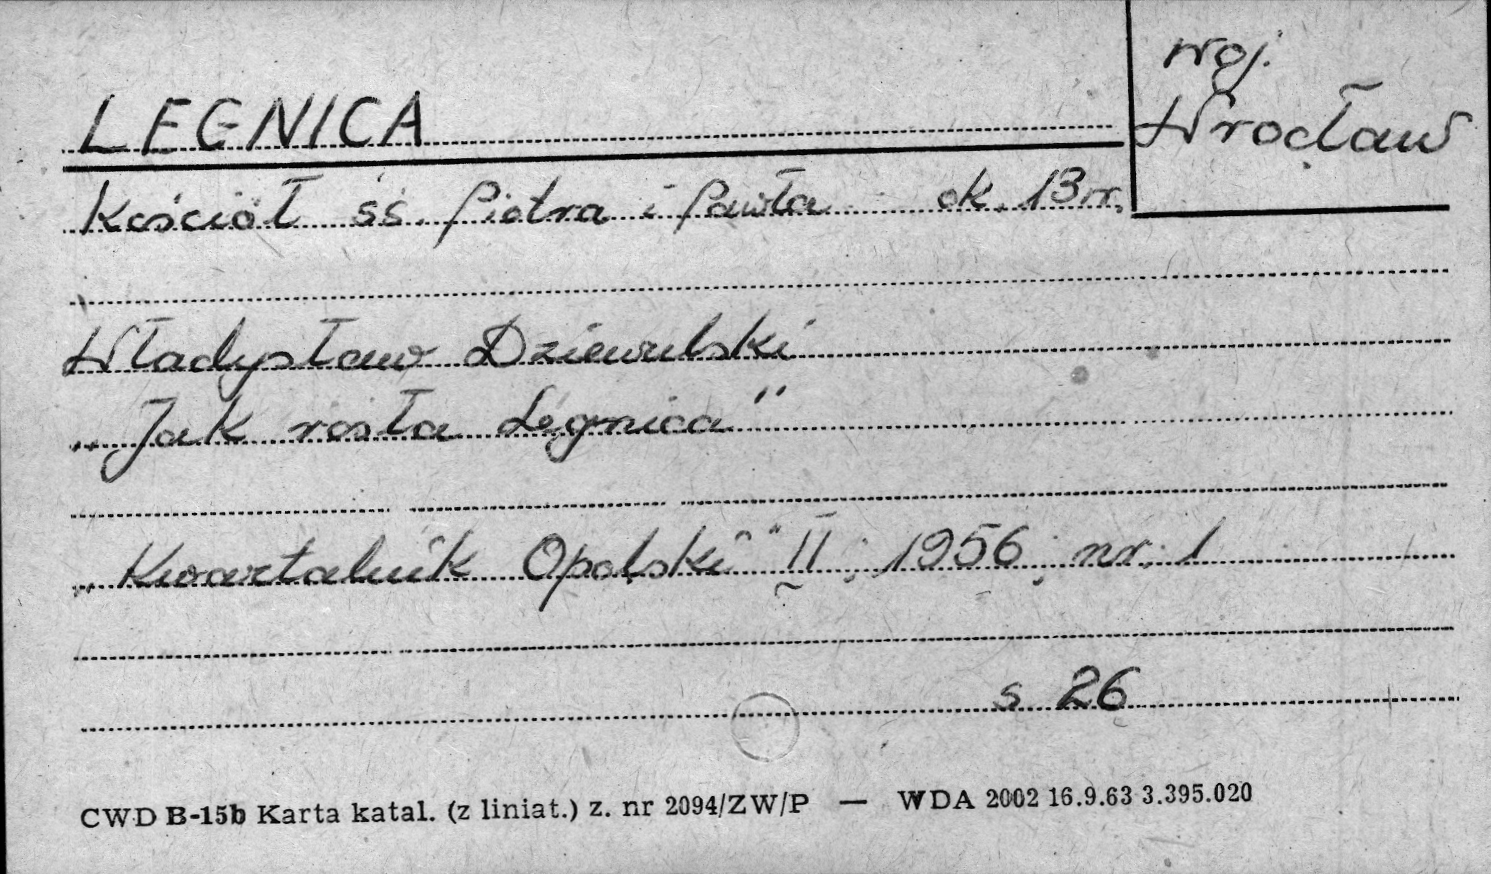 woj.
Wrocław
LEGNICA
Kościół śś. Piotra i Pawła ok. 13 w.
Władysław Dziewulski
„Jak rosła Legnica"
„Kwartalnik Opolski" II; 1956; nr. 1
s 26
CWD B-15b Karta katal. (z liniat.) z. nr 2094/ZW/P — WDA 2002 16.9.63 3.395.020